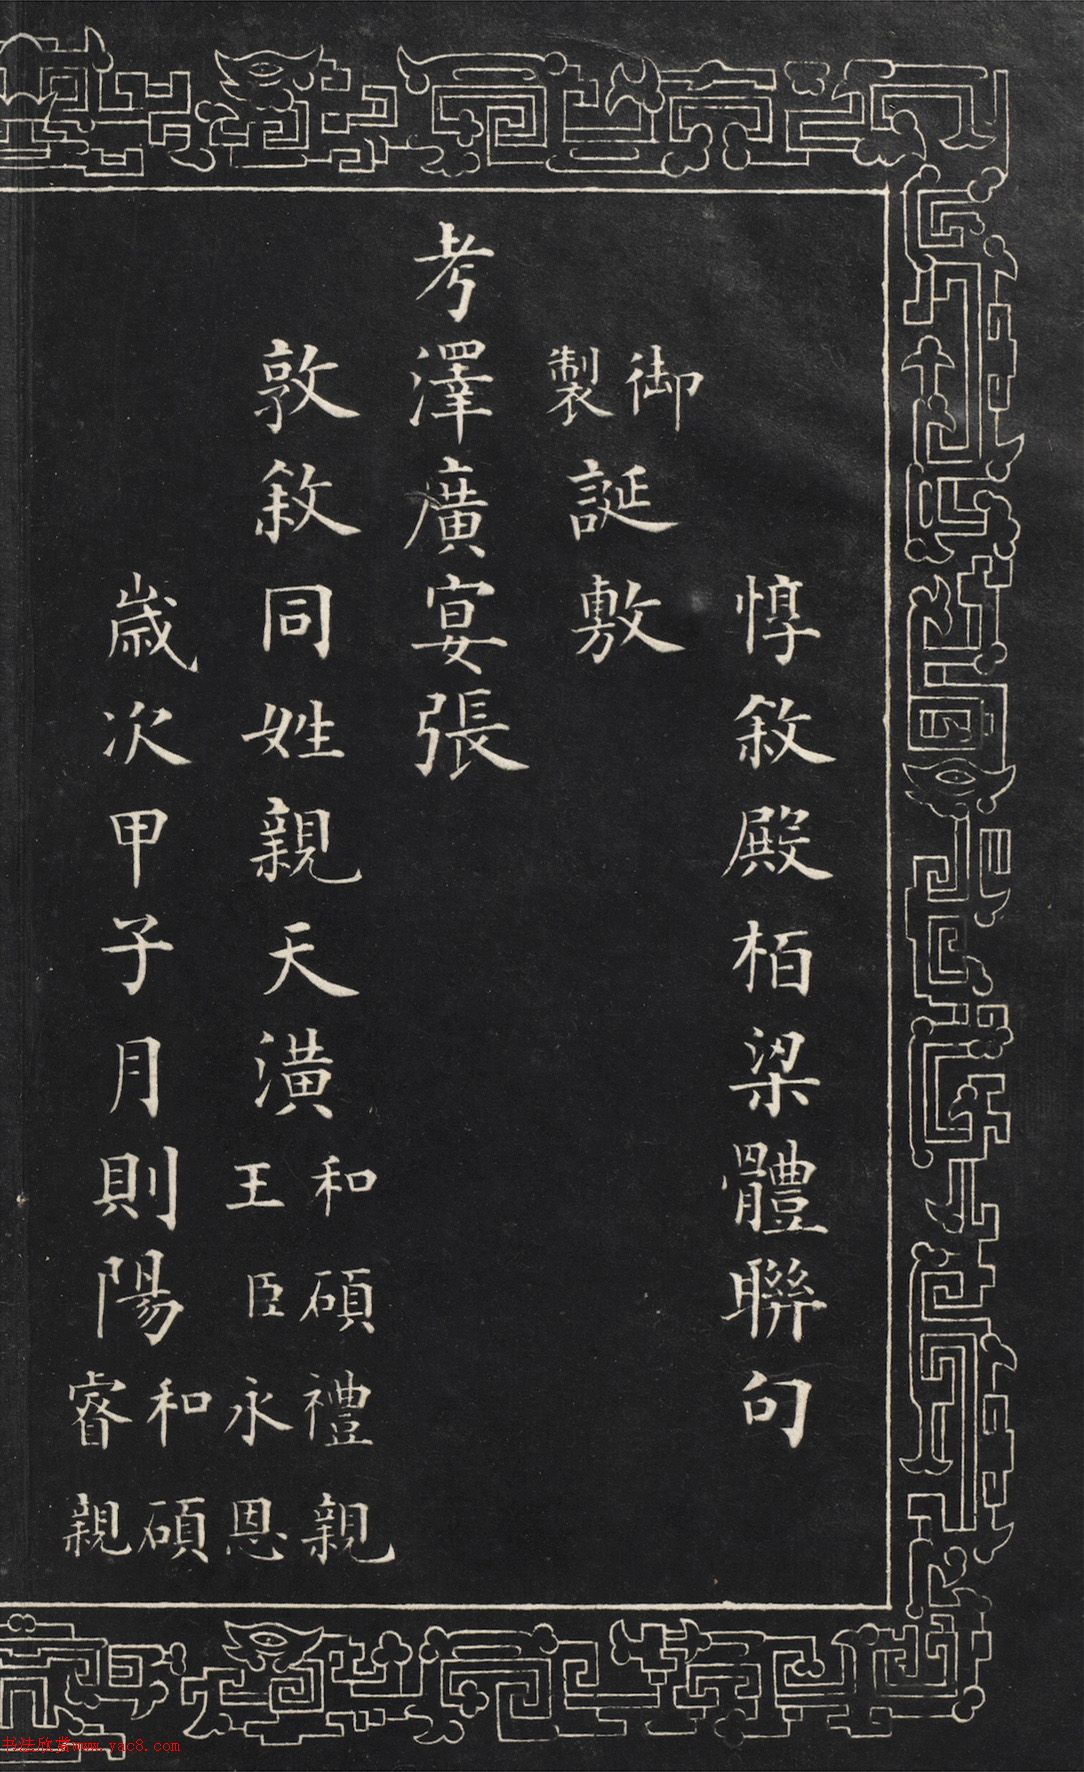 惇敘殿栢梁體聯句
御製誕敷
考澤廣宴張
敦敘同姓親天潢和碩禮親王臣永恩
歲次甲子月則陽和碩睿親
书法欣赏www.yac8.com